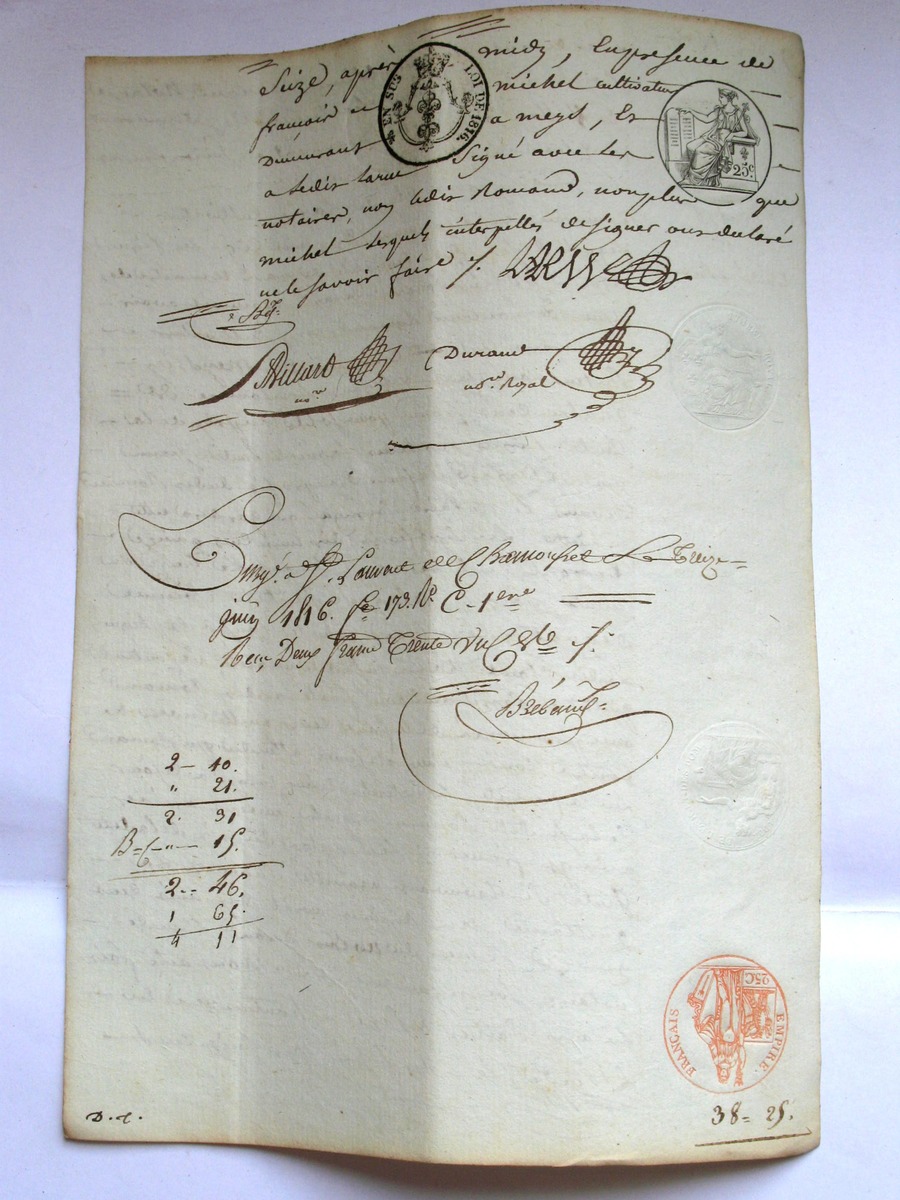 Seize, après midy, En presence de
françois michel cultivateur
Demeurant a meys, Et
a ledit Larue Signé avec les
notaires, non ledit Romand, non plus que
michel lesquels interpellés de signer ont declaré
ne le savoir faire ./.
EN SUS LOI DE 1816.
25c.
LARUE
Billard
nore
Durand
nore Royal
Enrgé. a St. Laurent de Chamousset Le Treize
juin 1816. fo 173. Ro C. 1ere
Recu Deux francs Trente
2 - 10.
" 21.
2. 31
15.
2 -- 46.
1 65.
4 11
EMPIRE FRANÇAIS
25C
38 = 25.